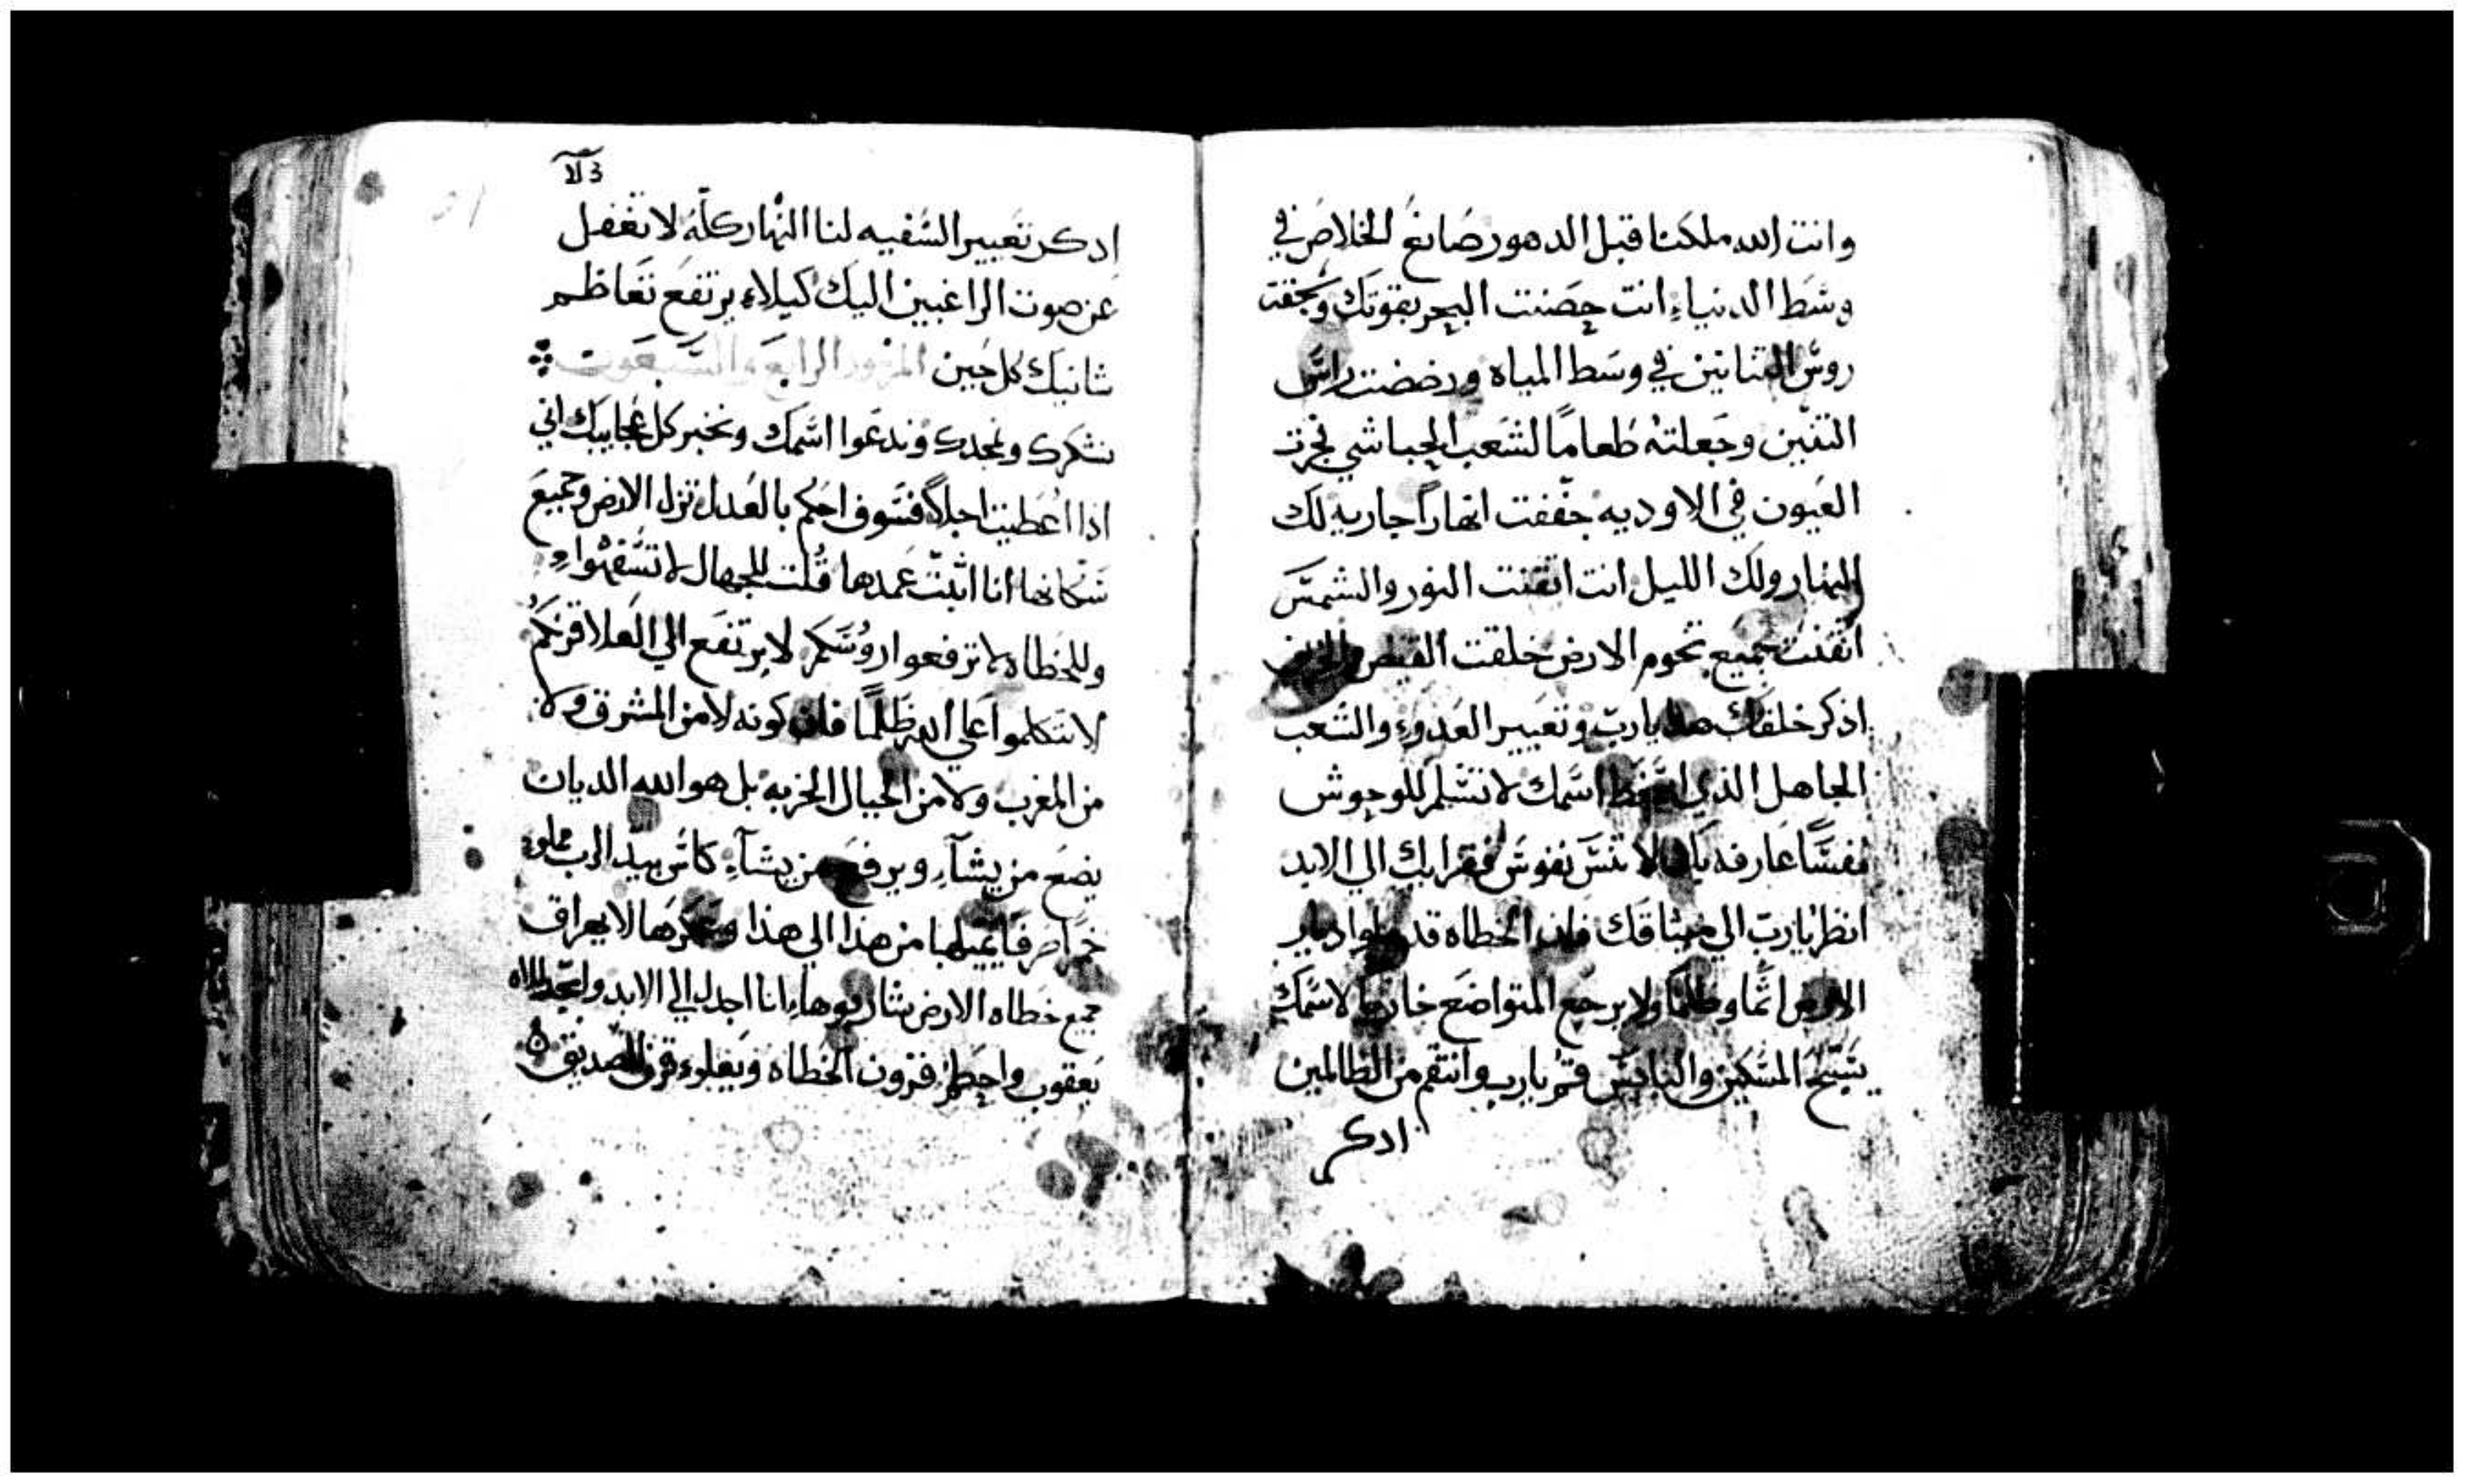 وانت الله ملكنا قبل الدهور صانع الخلاص في
وسط الدنياء انت حصنت البحر بقوتك وسحقت
روس التنانين في وسط المياه ورضضت راس
التنين وجعلته طعامًا لشعب الحباشي فجرت
العيون في الاوديه جففت انهاراً جاريه لك
النهار ولك الليل انت اتقنت النور والشمس
اتقنت جميع تخوم الارض خلقت القيض
اذكر خلقك هذا يارب وتعيير العدوء والشعب
الجاهل الذي اسخط اسمك لا تسلم للوحوش
نفسًا عارفه بك لا تنس نفوس فقرايك الي الابد
انظر يارب الي ميثاقك فان الخطاه قد
الارض اثما وظلما ولا يرجع المتواضع خازيا لاسمك
يسبح المسكين والبايس قم يارب وانتقم من الظالمين
ادكر
ادكر تعيير السفيه لنا النهار كله لا تغفل
عن صوت الراغبين اليك كيلاء يرتفع تعاظم
شانيك كل حين المزمور الرابع والسبعون
نشكرك ونمجدك وندعوا اسمك ونخبر كل عجايبك اني
اذا اعطيت اجلاً فسوف احكم بالعدل تزل الارض وجميع
سكانها انا اثبت عمدها قلت للجهال لا تسفهواء
وللخطاه لا ترفعوا روسكم لا يرتفع الي العلا قرنكم
لا تتكلموا علي الله ظلمًا فان كونه لا من المشرق ولا
من المغرب ولا من الجبال الخربه بل هو الله الديان
يضع من يشآء ويرفع من يشآء كاس بيد الرب مملوء
جميع خطاه الارض يشاربوهاء انا اجدل الي الابد
يعقوب واحطم قرون الخطاه وتعلوء قرن الصديق